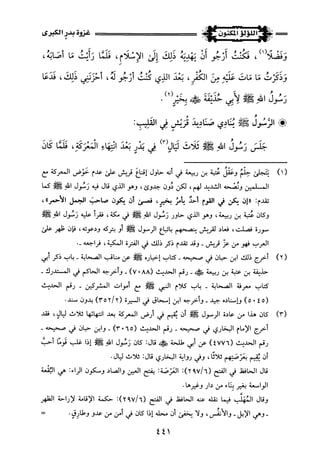 غزوة بدر الكبرى
اللؤلؤ المكنون
وَفَضْلًا(١)، فَكُنْتُ أَرْجُو أَنْ يَهْدِيَهُ ذَلِكَ إِلَى الإِسْلَامِ، فَلَمَّا رَأَيْتُ مَا أَصَابَهُ،
وَذَكَرْتُ مَا مَاتَ عَلَيْهِ مِنَ الكُفْرِ، بَعْدَ الذِي كُنْتُ أَرْجُو لَهُ، أَحْزَنَنِي ذَلِكَ، فَدَعَا
رَسُولُ اللهِ ﷺ لِأَبِي حُذَيْفَةَ ﷺ بِخَيْرٍ(٢).
الرَّسُولُ ﷺ يُنَادِي صَنَادِيدَ قُرَيْشٍ فِي القَلِيبِ:
جَلَسَ رَسُولُ اللهِ ﷺ ثَلَاثَ لَيَالٍ(٣) فِي بَدْرٍ بَعْدَ انْتِهَاءِ المَعْرَكَةِ، فَلَمَّا كَانَ
(١) يَتَجلى حِلْمُ وعَقْلُ عُتبة بن ربيعة في أنه حاول إقناعَ قريش على عدم خَوْض المعركة مع
المسلمين ونُصْحه الشديد لهم، لكن دُون جدوى، وهو الذي قال فيه رسُول الله ﷺ كما
تقدم: «إن يكن في القوم أحدٌ يأمرُ بخيرٍ، فعسى أن يكون صاحبَ الجملِ الأحمرِ»،
وكان عُتبة بن ربيعة، وهو الذي حاور رسُول الله ﷺ في مكة، فقرأ عليه رسُول الله ﷺ
سورة فصلت، فعاد لقريش ينصحهم باتباع الرسول ﷺ أو بتركه ودعوته، فإن ظهر على
العرب فهو من عزّ قريش - وقد تقدم ذكر ذلك في الفترة المكية، فراجعه -.
(٢) أخرج ذلك ابن حبان في صحيحه - كتاب إخباره ﷺ عن مناقب الصحابة - باب ذكر أبي
حذيفة بن عتبة بن ربيعة ﷺ - رقم الحديث (٧٠٨٨) - وأخرجه الحاكم في المستدرك -
كتاب معرفة الصحابة - باب كلام النبي ﷺ مع أموات المشركين - رقم الحديث
(٥٠٤٥) وإسناده جيد - وأخرجه ابن إسحاق في السيرة (٣٥٢/٢) بدون سند.
(٣) كان هذا من عادة الرسول ﷺ أن يُقيم في أرض المعركة بعد انتهائها ثلاثَ ليالٍ، فقد
أخرج الإمام البخاري في صحيحه - رقم الحديث (٣٠٦٥) - وابن حبان في صحيحه -
رقم الحديث (٤٧٧٦) عن أبي طلحة ﷺ قال: كان رسُول الله ﷺ إذا غلب قَومًا أحبَّ
أن يُقِيم بعَرْصَتِهم ثلاثًا، وفي رواية البخاري قال: ثلاث ليال.
قال الحافظ في الفتح (٢٩٧/٦): العَرْصَة: بفتح العين والصاد وسكون الراء: هي البُقْعة
الواسعة بغير بِناء من دار وغيرها.
وقال المُهَلَّب فيما نقله عنه الحافظ في الفتح (٢٩٧/٦): حكمة الإقامة لإراحة الظهر
- وهي الإبل - والأنفُسِ، ولا يخفى أن محله إذا كان في أمن من عدو وطارِق. =
٤٤١